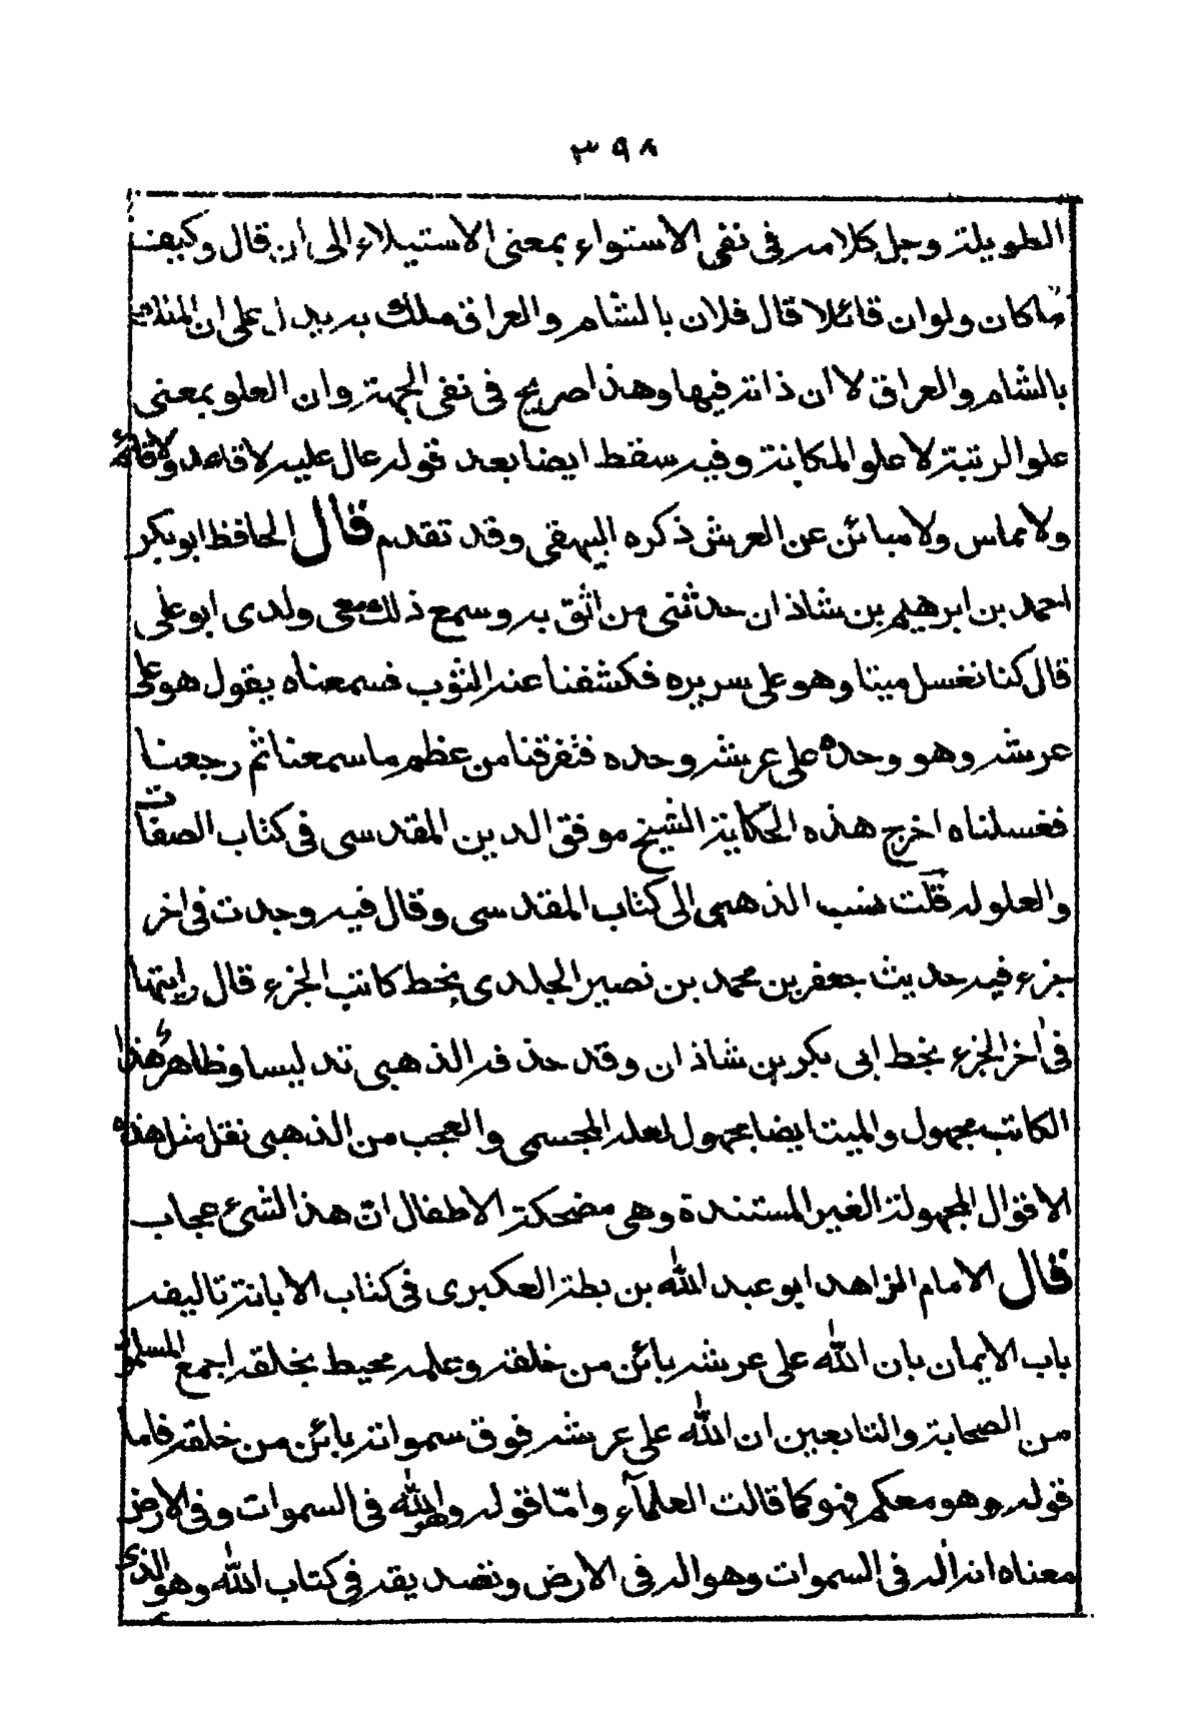 ٣٩٨
الطويلة وجل كلامه في نفى الاستواء بمعنى الاستيلاء الى ان قال وكيف
ما كان ولو ان قائلا قال فلان بالشام والعراق ملك به يدل على ان
بالشام والعراق لا ان ذاته فيها وهذا صريح في نفى الجهة وان العلو بمعنى
علو الرتبة لا علو المكانة وفيه سقط ايضا بعد قوله عال عليه لا قاعد ولا قائم
ولا مماس ولا مبائن عن العرش ذكره البيهقى وقد تقدم قال الحافظ ابو بكر
احمد بن ابرهيم بن شاذان حدثنى من اثق به وسمع ذلك معى ولدى ابو على
قال كنا نغسل ميتا وهو على سريره فكشفنا عنه الثوب فسمعناه يقول هو على
عرشه وهو وحده على عرشه وحده فتفرقنا من عظم ما سمعنا ثم رجعنا
فغسلناه اخرج هذه الحكاية الشيخ موفق الدين المقدسى فى كتاب الصفات
والعلو له قلت نسب الذهبى الى كتاب المقدسى وقال فيه وجدت فى اخر
جزء فيه حديث جعفر بن محمد بن نصير الجلدى بخط كاتب الجزء قال رايتها
فى اخر الجزء بخط ابى بكر بن شاذان وقد حذفه الذهبى تدليسا وظاهره هذا
الكاتب مجهول والميت ايضا مجهول لعله المجسمى والعجب من الذهبى نقل مثل هذه
الاقوال المجهولة الغير المستندة وهى مضحكة الاطفال ان هذا لشئ عجاب
قال الامام الزاهد ابو عبد الله بن بطة العكبرى فى كتاب الابانة تاليفه
باب الايمان بان الله على عرشه بائن من خلقه وعلمه محيط بخلقه اجمع المسلمون
من الصحابة والتابعين ان الله على عرشه فوق سمواته بائن من خلقه فاما
قوله وهو معكم فهو كما قالت العلمآء وامّا قوله وهو الله فى السموات وفى الارض
معناه انه اله فى السموات وهو اله فى الارض وتصديقه فى كتاب الله وهو الذى